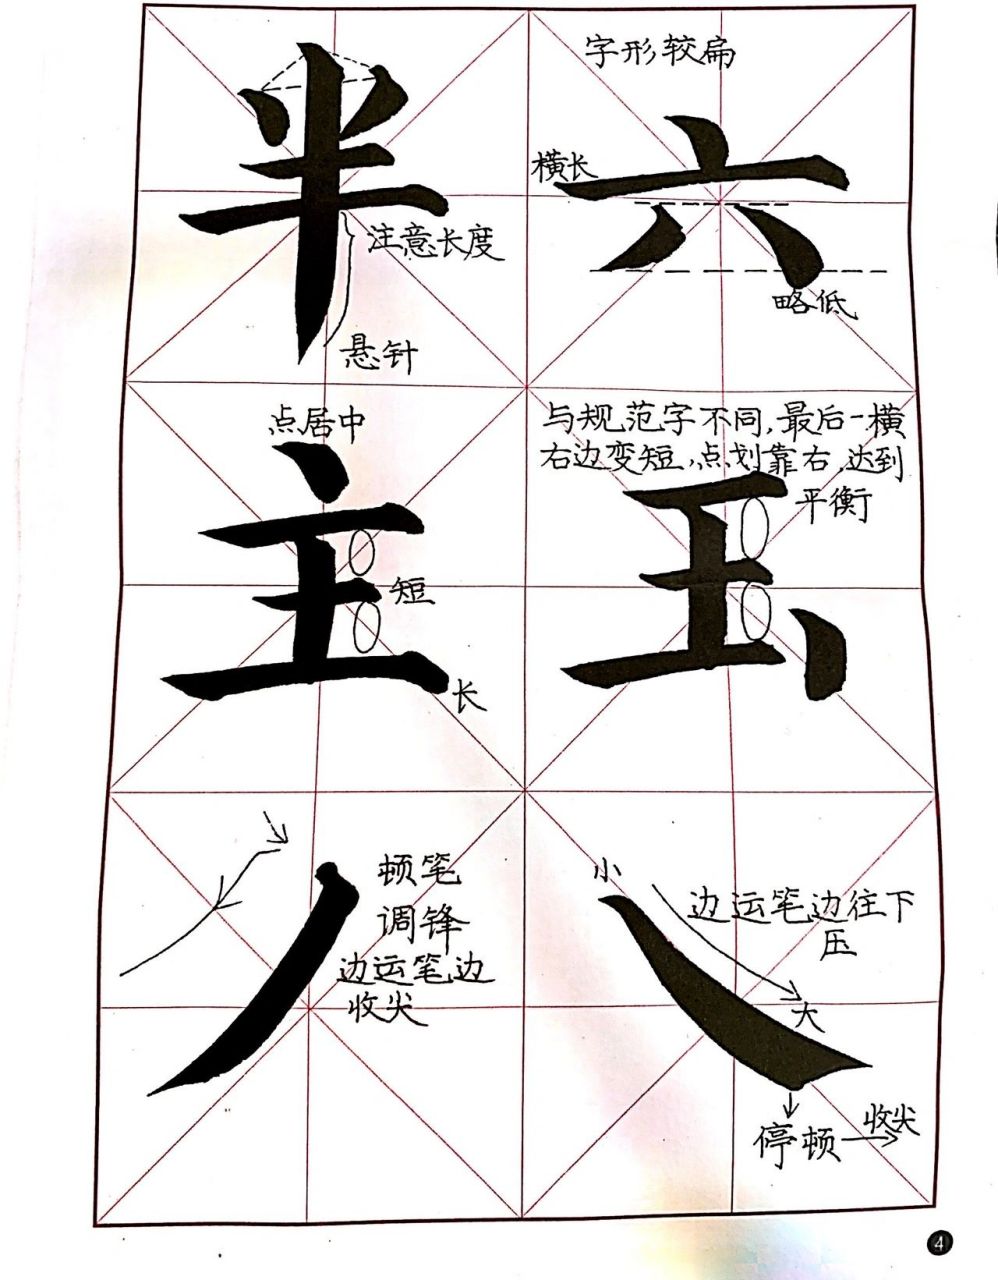 半
注意长度
悬针
字形较扁
横长
六
略低
点居中
主
短
长
与规范字不同,最后一横
右边变短,点划靠右,达到
平衡
玉
顿笔
调锋
边运笔边
收尖
小
边运笔边往下
压
大
停顿
收尖
4